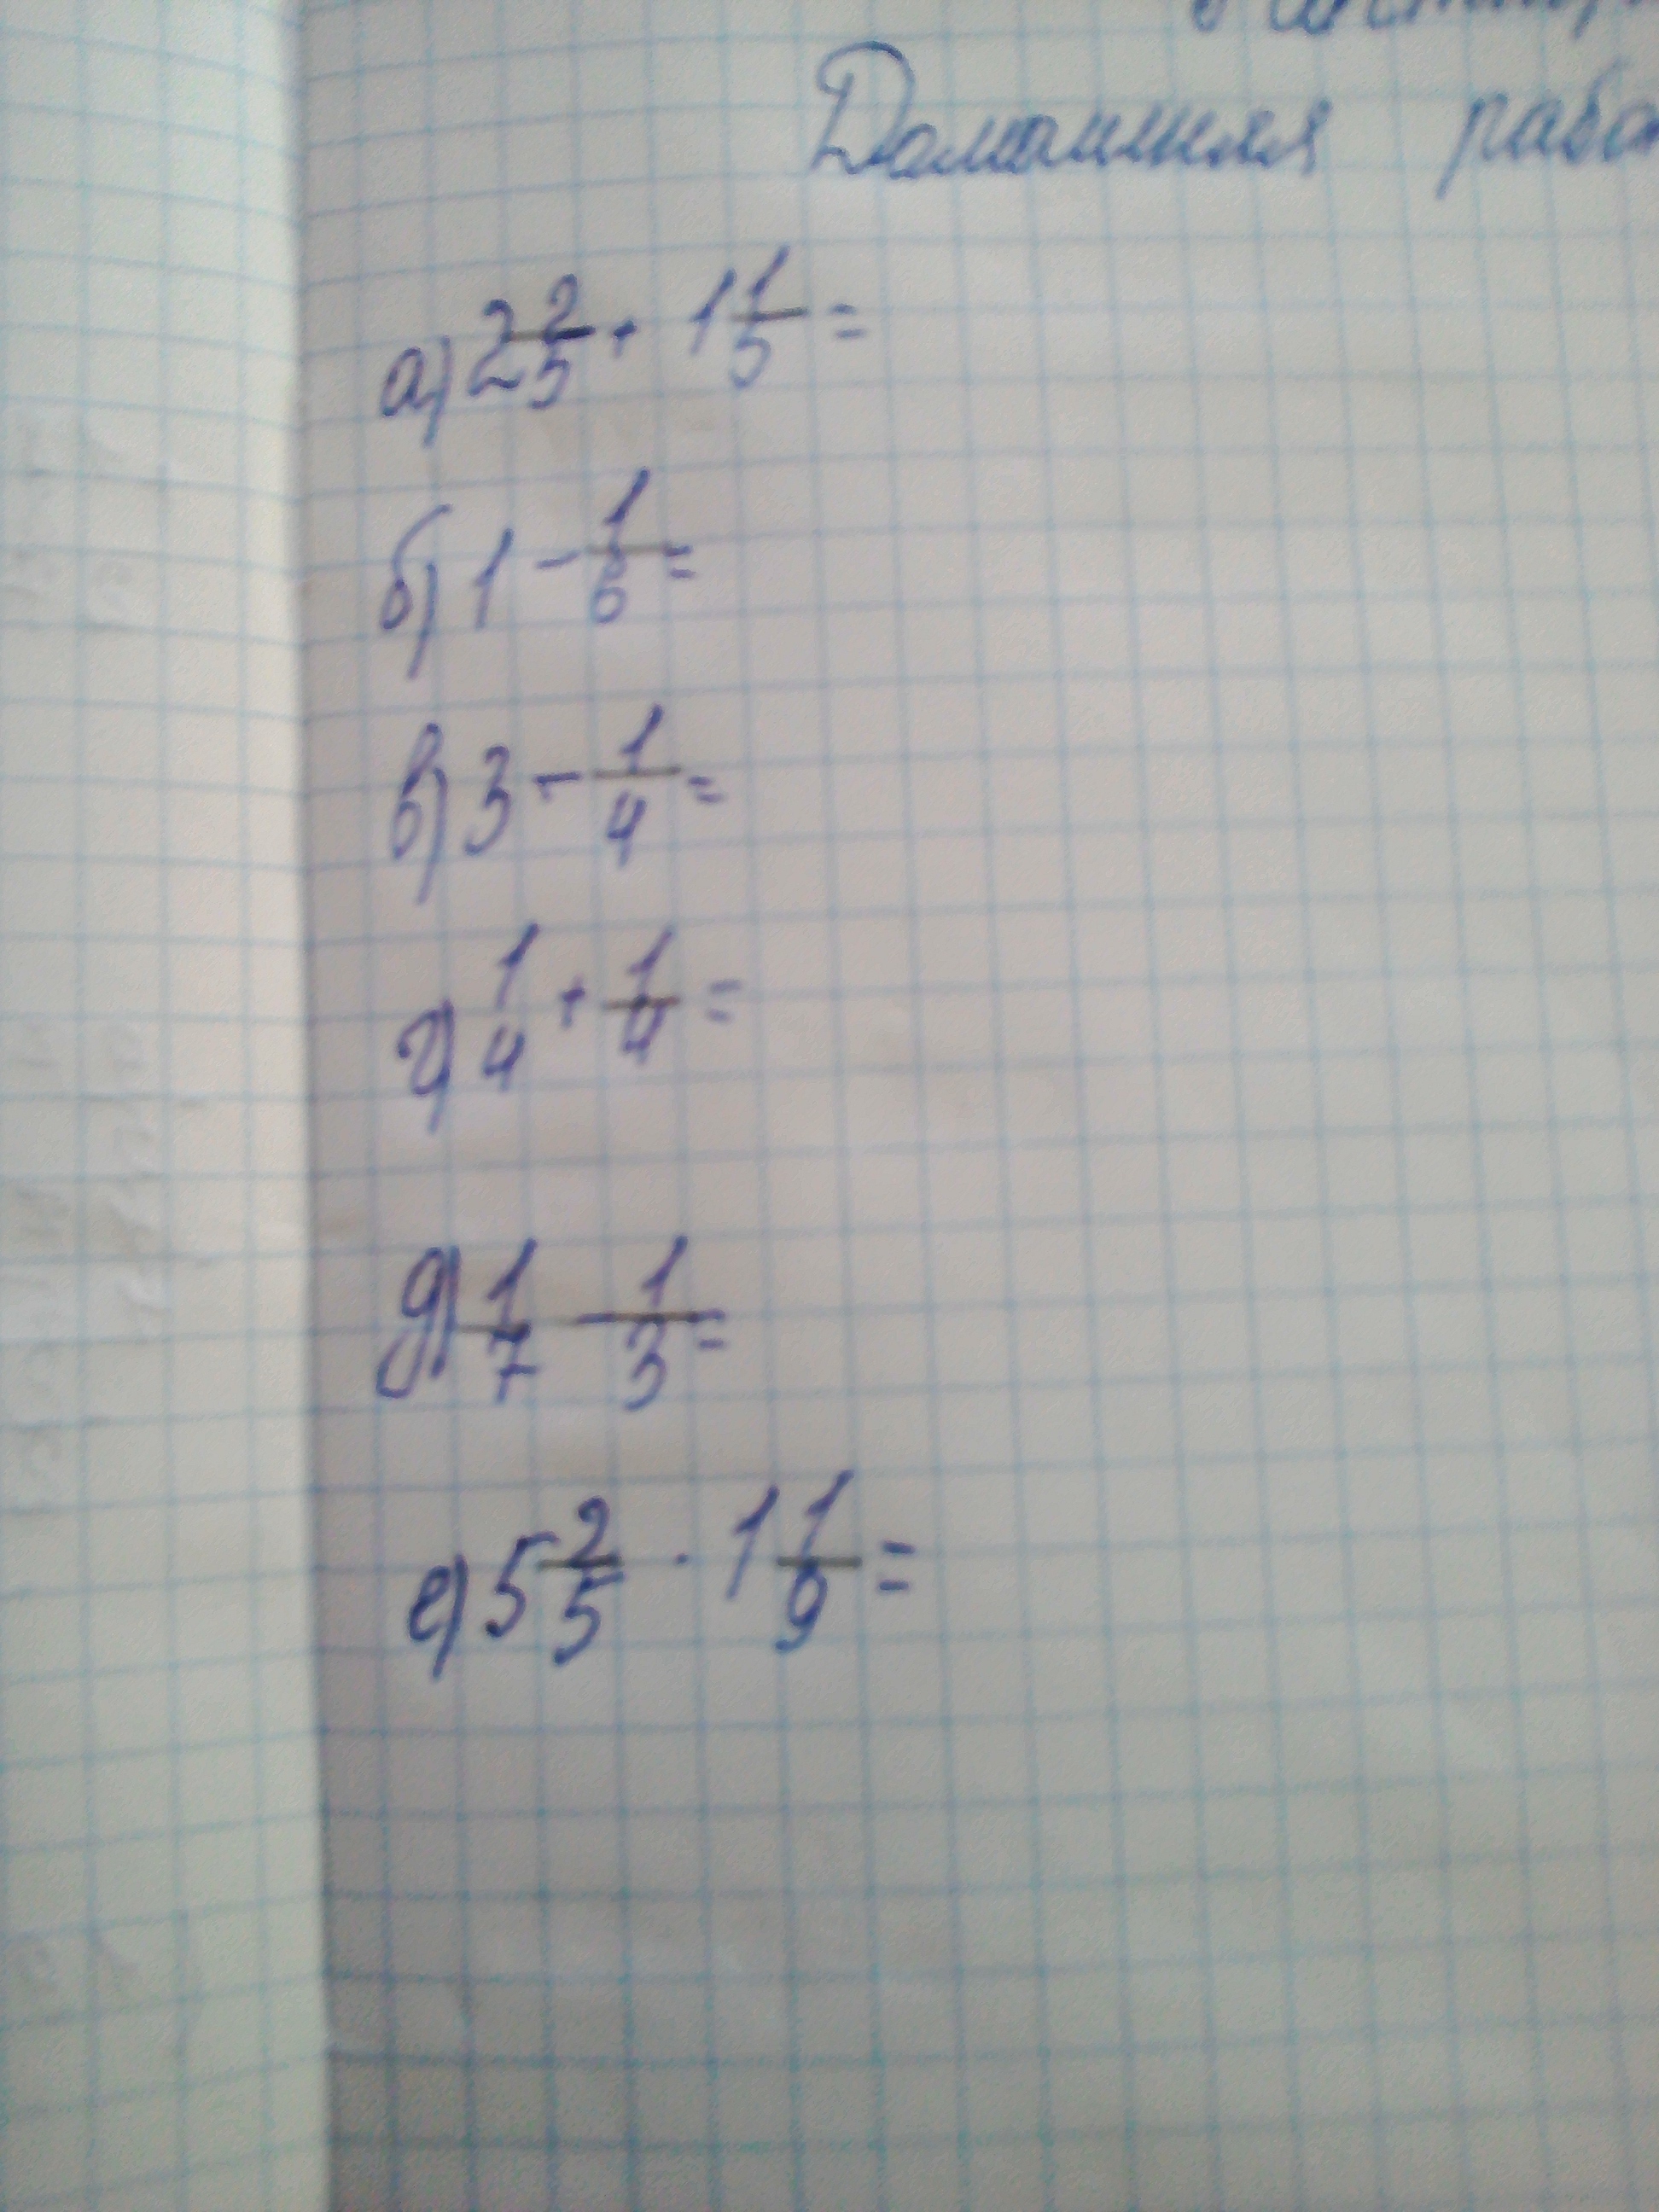 Домашняя
а) 2 2/5 + 1 1/5 =
б) 1 - 1/6 =
в) 3 - 1/4 =
г) 1/4 + 1/4 =
д) 1/7 - 1/3 =
е) 5 2/5 · 1 1/9 =